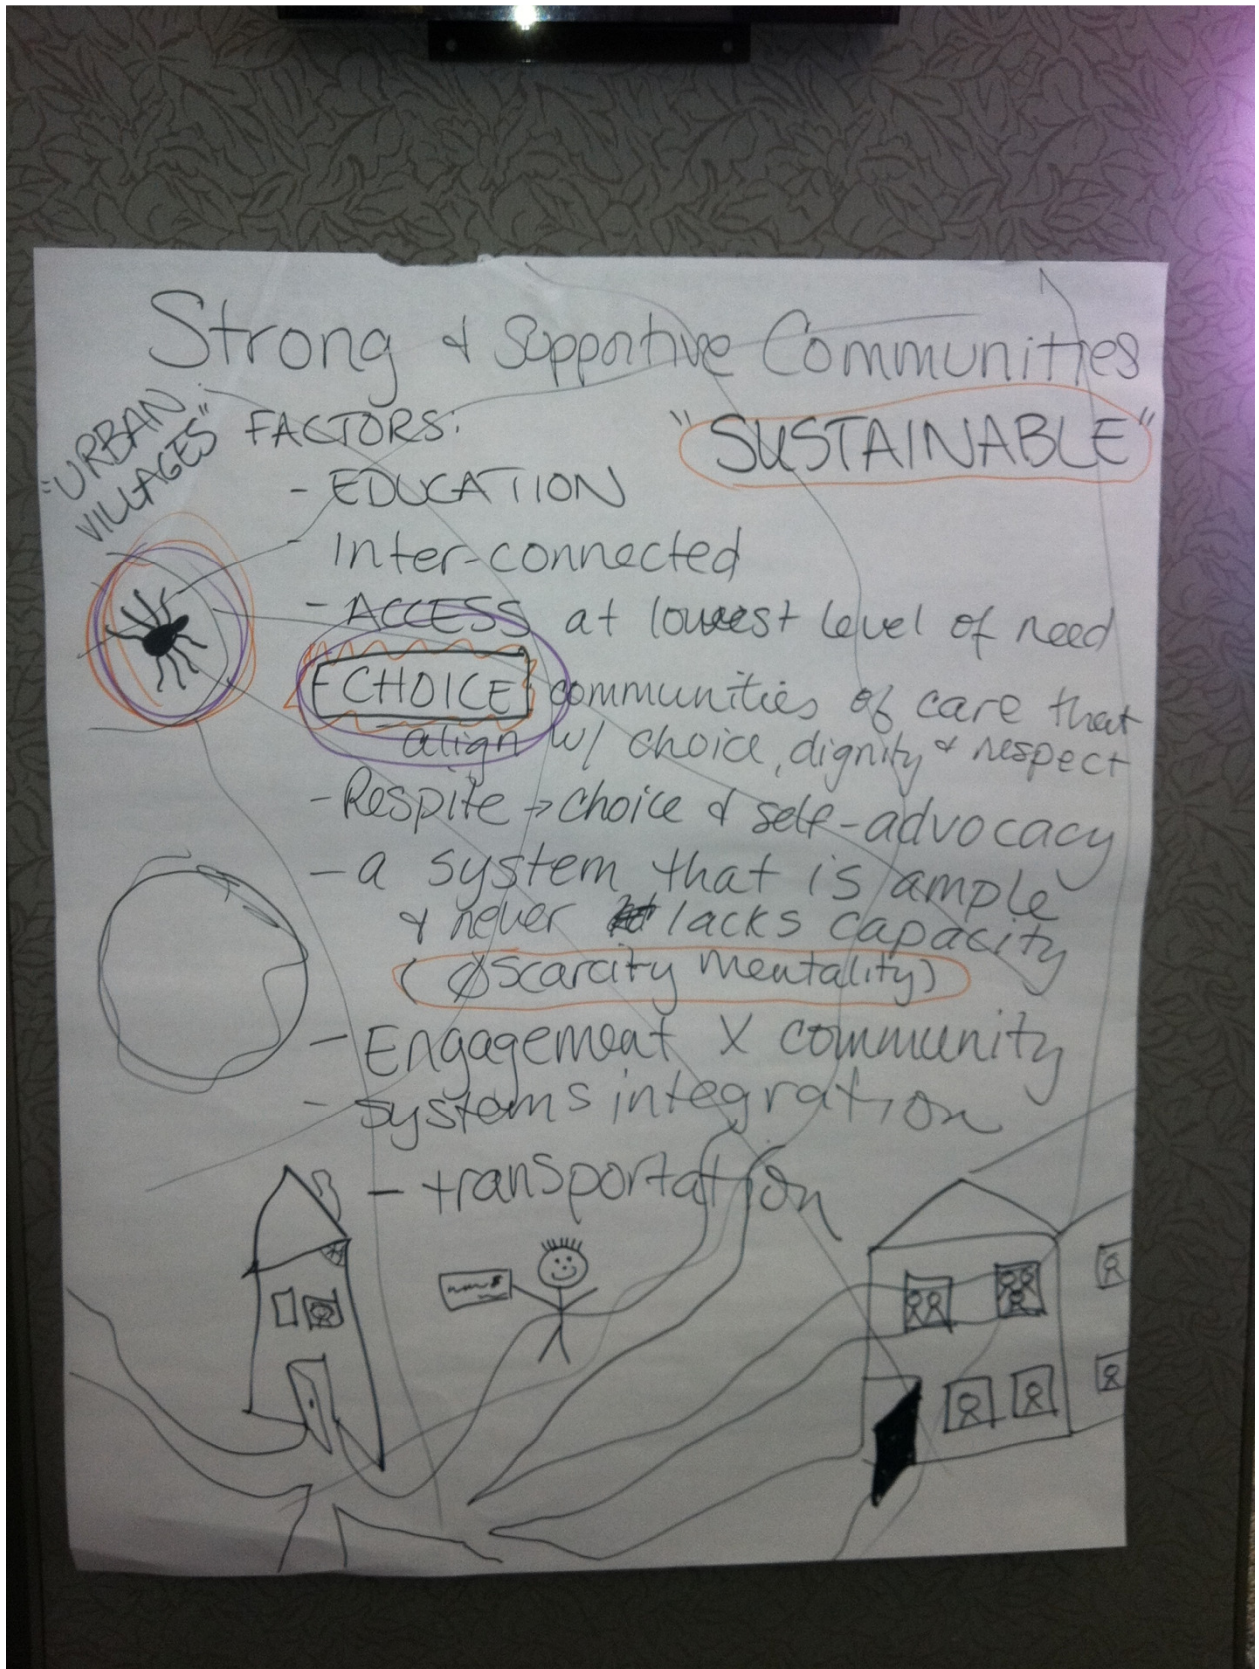 Strong & Supportive Communities
"URBAN
VILLAGES"
FACTORS:
"SUSTAINABLE"
- EDUCATION
- Inter-connected
- ACCESS at lowest level of need
- CHOICE communities of care that
align w/ choice, dignity & respect
- Respite → choice & self-advocacy
- a system that is ample
& never lacks capacity
(Ø scarcity mentality)
- Engagement X community
- systems integration
- transportation